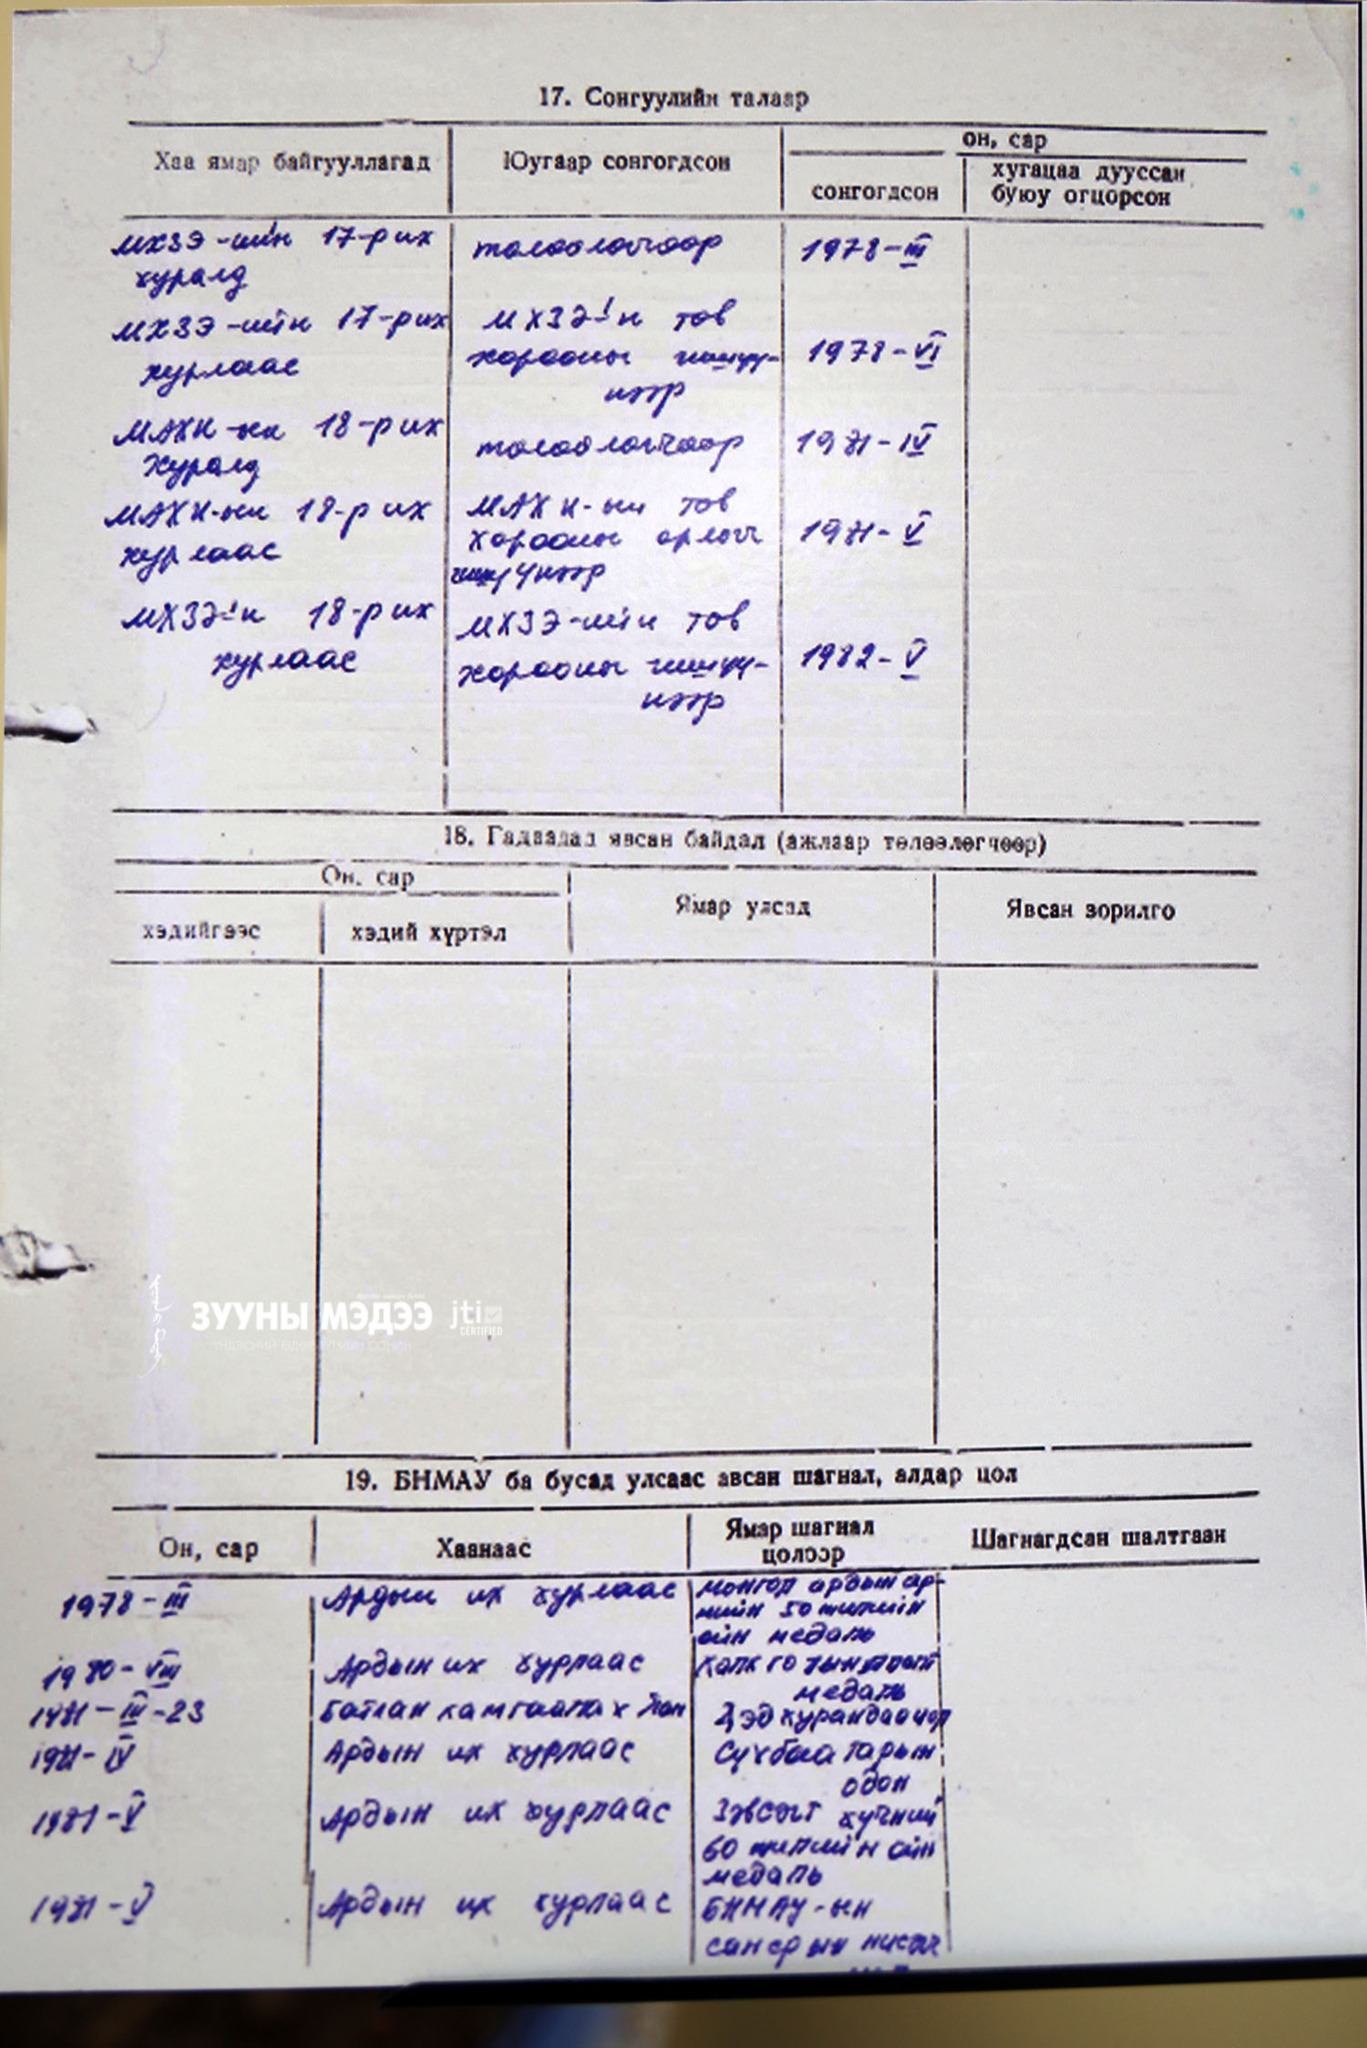 17. Сонгуулийн талаар
Хаа ямар байгууллагад
Юугаар сонгогдсон
он, сар
сонгогдсон
хугацаа дууссан
буюу огцорсон
МХЗЭ-ийн 17-р их
хуралд
төлөөлөгчөөр
1978-III
МХЗЭ-ийн 17-р их
хурлаас
МХЗЭ-ийн төв
хорооны гишүү-
нээр
1978-VI
МАХН-ын 18-р их
хуралд
төлөөлөгчөөр
1981-IV
МАХН-ын 18-р их
хурлаас
МАХН-ын төв
хорооны орлогч
гишүүнээр
1981-V
МХЗЭ-ийн 18-р их
хурлаас
МХЗЭ-ийн төв
хорооны гишүү-
нээр
1982-V
18. Гадаадад явсан байдал (ажлаар төлөөлөгчөөр)
Он, сар
хэдийгээс
хэдий хүртэл
Ямар улсад
Явсан зорилго
ЗУУНЫ МЭДЭЭ jti
CERTIFIED
19. БНМАУ ба бусад улсаас авсан шагнал, алдар цол
Он, сар
Хаанаас
Ямар шагнал
цолоор
Шагнагдсан шалтгаан
1978-III
Ардын их хурлаас
Монгол ардын ар-
мийн 50 жилийн
ойн медаль
1980-VIII
Ардын их хурлаас
медаль
1981-III-23
Батлан хамгаалах
Дэд хурандаа цол
1981-IV
Ардын их хурлаас
Сүхбаатарын
одон
1981-V
Ардын их хурлаас
Зэвсэгт хүчний
60 жилийн ойн
медаль
1981-V
Ардын их хурлаас
БНМАУ-ын
сансрын нисгэгч